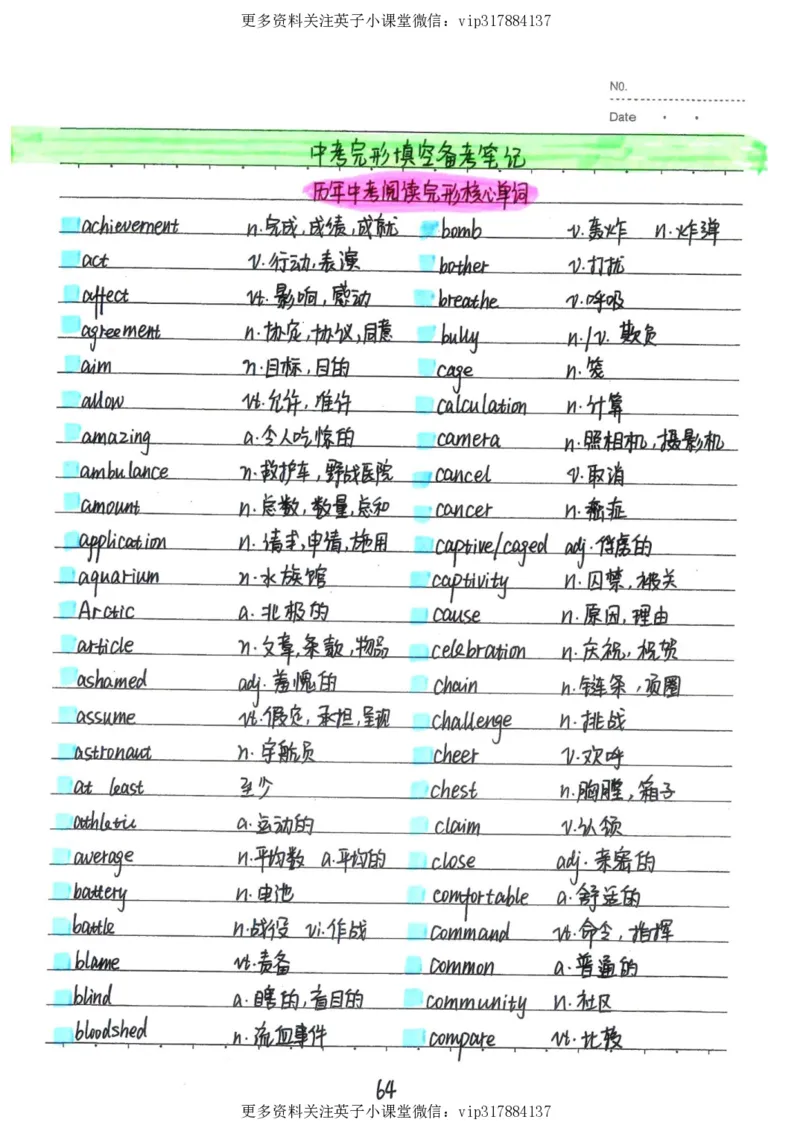 更多资料关注英子小课堂微信：vip317884137
NO.
Date
中考完形填空备考笔记
历年中考阅读完形核心单词
achievement n.完成,成绩,成就
act v.行动,表演
affect vt.影响,感动
agreement n.协定,协议,同意
aim n.目标,目的
allow vt.允许,准许
amazing a.令人吃惊的
ambulance n.救护车,野战医院
amount n.总数,数量,总和
application n.请求,申请,施用
aquarium n.水族馆
Arctic a.北极的
article n.文章,条款,物品
ashamed adj.羞愧的
assume vt.假定,承担,呈现
astronaut n.宇航员
at least 至少
athletic a.运动的
average n.平均数 a.平均的
battery n.电池
battle n.战役 vi.作战
blame vt.责备
blind a.瞎的,盲目的
bloodshed n.流血事件
bomb v.轰炸 n.炸弹
bother v.打扰
breathe v.呼吸
bully n./v.欺负
cage n.笼
calculation n.计算
camera n.照相机,摄影机
cancel v.取消
cancer n.癌症
captive/caged adj.俘虏的
captivity n.囚禁,被关
cause n.原因,理由
celebration n.庆祝,祝贺
chain n.链条,项圈
challenge n.挑战
cheer v.欢呼
chest n.胸膛,箱子
claim v.认领
close adj.亲密的
comfortable a.舒适的
command vt.命令,指挥
common a.普通的
community n.社区
compare vt.比较
64
更多资料关注英子小课堂微信：vip317884137